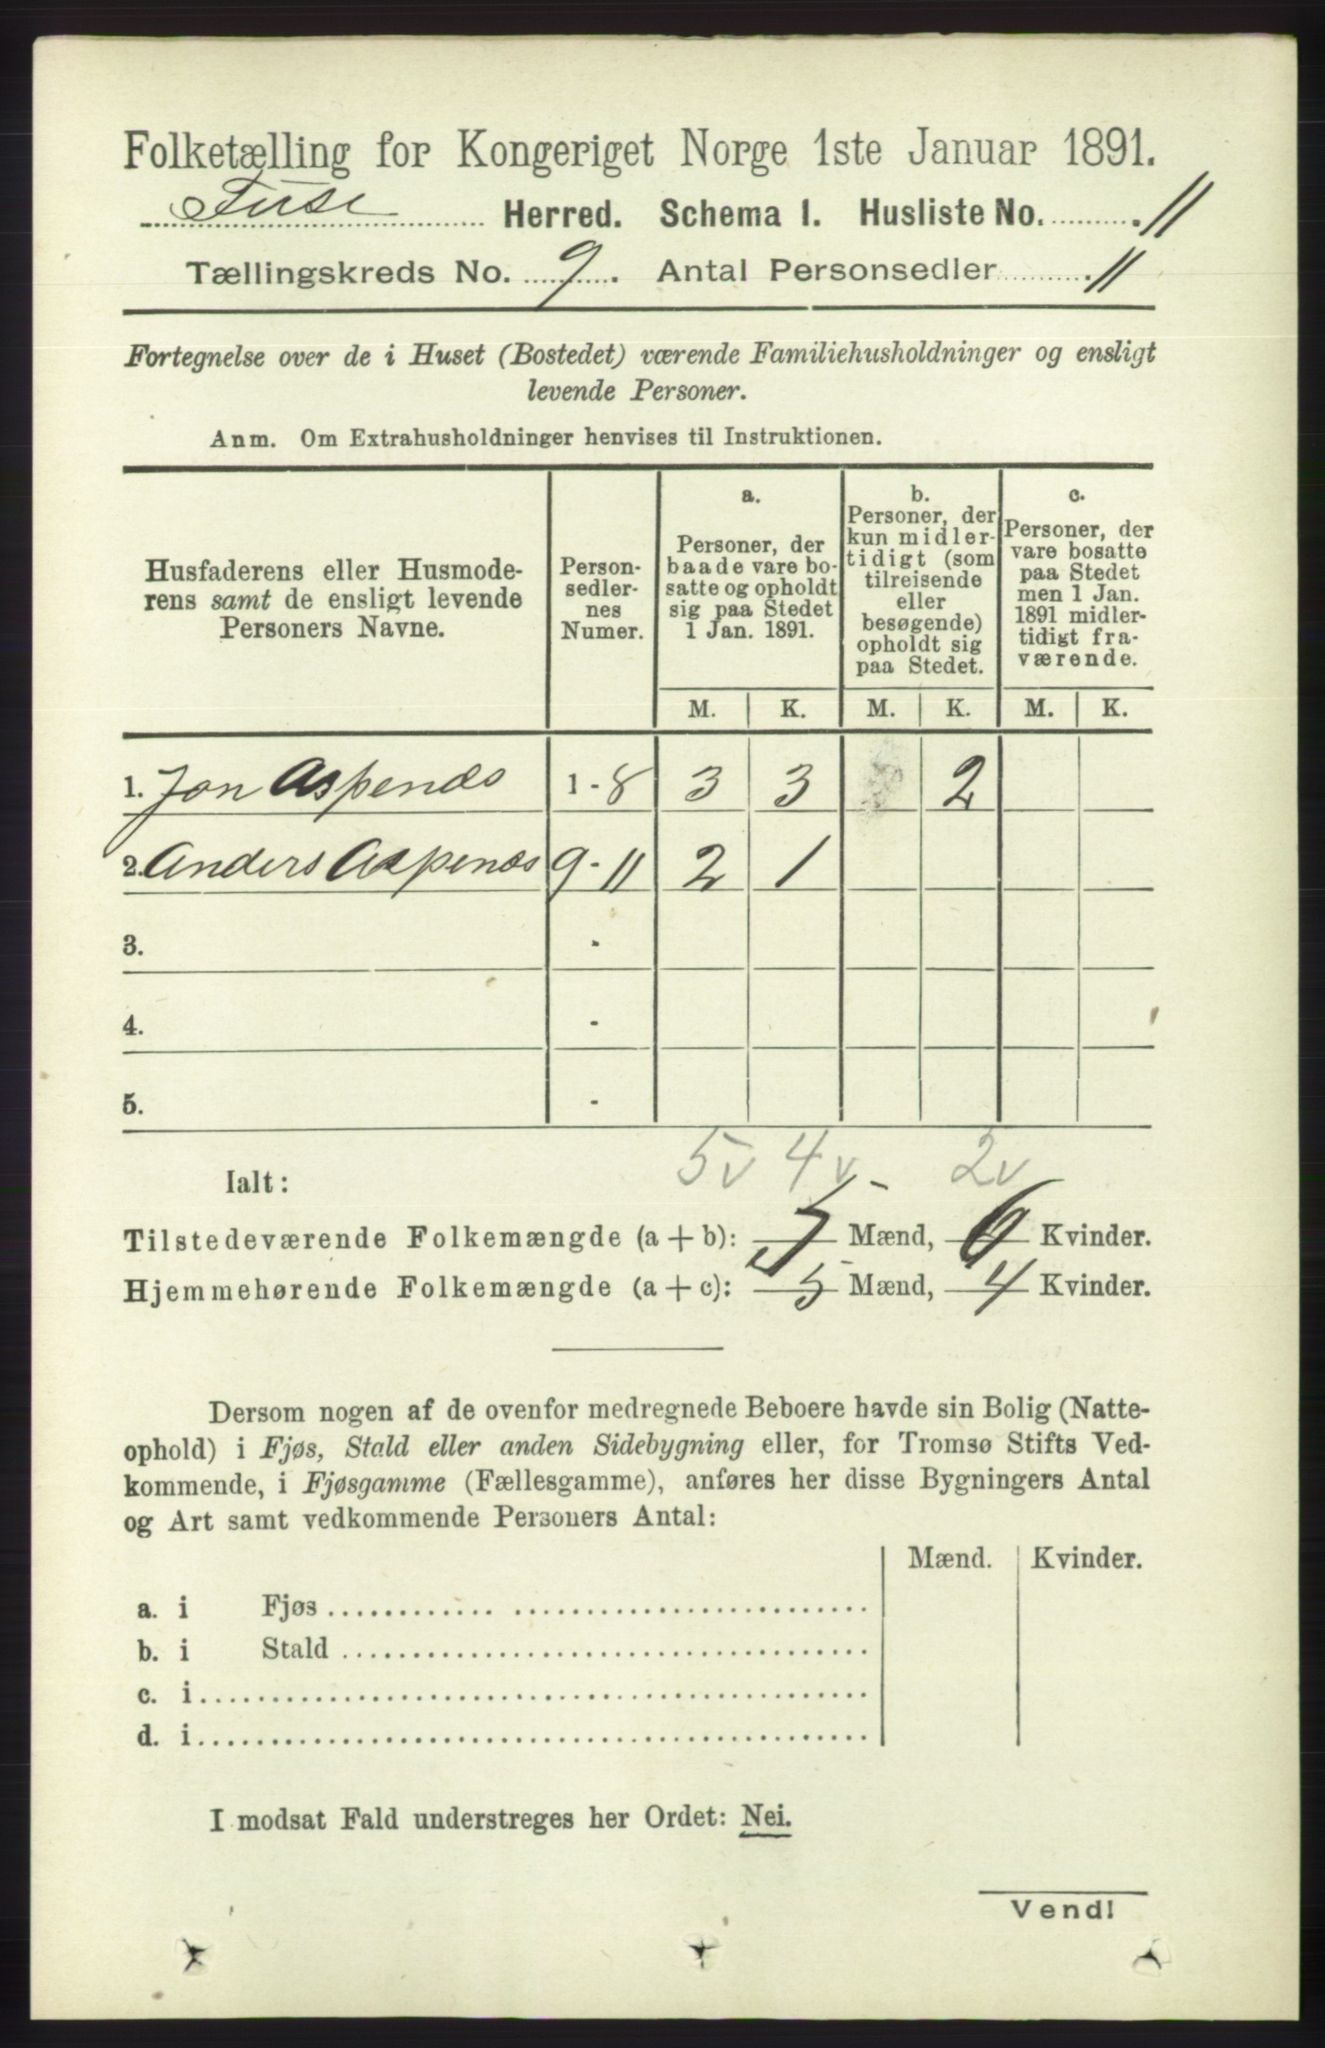 Folketælling for Kongeriget Norge 1ste Januar 1891.
Fuse Herred. Schema 1. Husliste No. 11
Tællingskreds No. 9. Antal Personsedler 11
Fortegnelse over de i Huset (Bostedet) værende Familiehusholdninger og ensligt
levende Personer.
Anm. Om Extrahusholdninger henvises til Instruktionen.
Husfaderens eller Husmode-
rens samt de ensligt levende
Personers Navne.
Person-
sedler-
nes
Numer.
a.
Personer, der
baade vare bo-
satte og opholdt
sig paa Stedet
1 Jan. 1891.
b.
Personer, der
kun midler-
tidigt (som
tilreisende
eller
besøgende)
opholdt sig
paa Stedet.
c.
Personer, der
vare bosatte
paa Stedet
men 1 Jan.
1891 midler-
tidigt fra-
værende.
M. K. M. K. M. K.
1. Jon Aspenæs 1-8 3 3 2
2. Anders Aspenæs 9-11 2 1
3. -
4. -
5. -
5v 4v 2v
Ialt:
Tilstedeværende Folkemængde (a + b): 5 Mænd, 6 Kvinder.
Hjemmehørende Folkemængde (a + c): 5 Mænd, 4 Kvinder.
Dersom nogen af de ovenfor medregnede Beboere havde sin Bolig (Natte-
ophold) i Fjøs, Stald eller anden Sidebygning eller, for Tromsø Stifts Ved-
kommende, i Fjøsgamme (Fællesgamme), anføres her disse Bygningers Antal
og Art samt vedkommende Personers Antal:
Mænd. Kvinder.
a. i Fjøs
b. i Stald
c. i
d. i
I modsat Fald understreges her Ordet: Nei.
Vend!